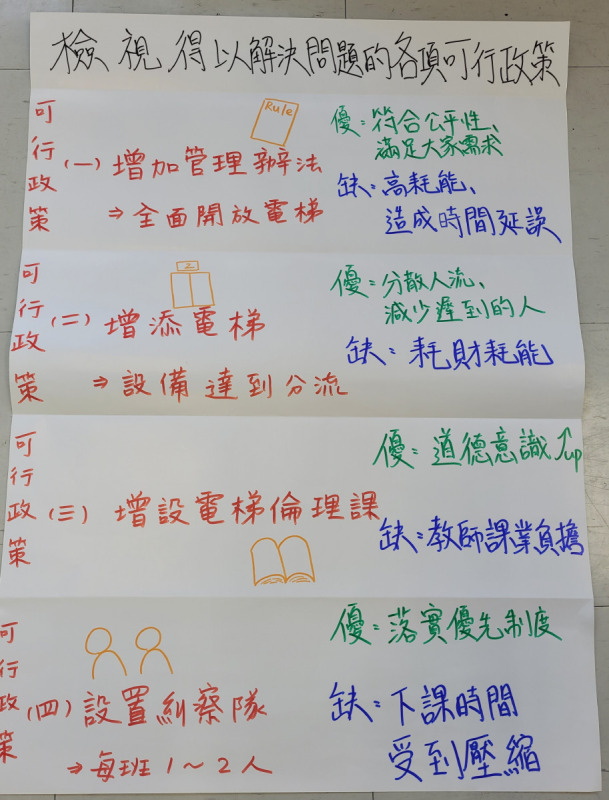 檢視得以解決問題的各項可行政策
可行政策(一)增加管理辦法
⇒全面開放電梯
Rule
優:符合公平性、
滿足大家需求
缺:高耗能、
造成時間延誤
可行政策(二)增添電梯
⇒設備達到分流
2
優:分散人流、
減少遲到的人
缺:耗財耗能
可行政策(三)增設電梯倫理課
優:道德意識↑up
缺:教師課業負擔
可行政策(四)設置糾察隊
⇒每班1~2人
優:落實優先制度
缺:下課時間
受到壓縮